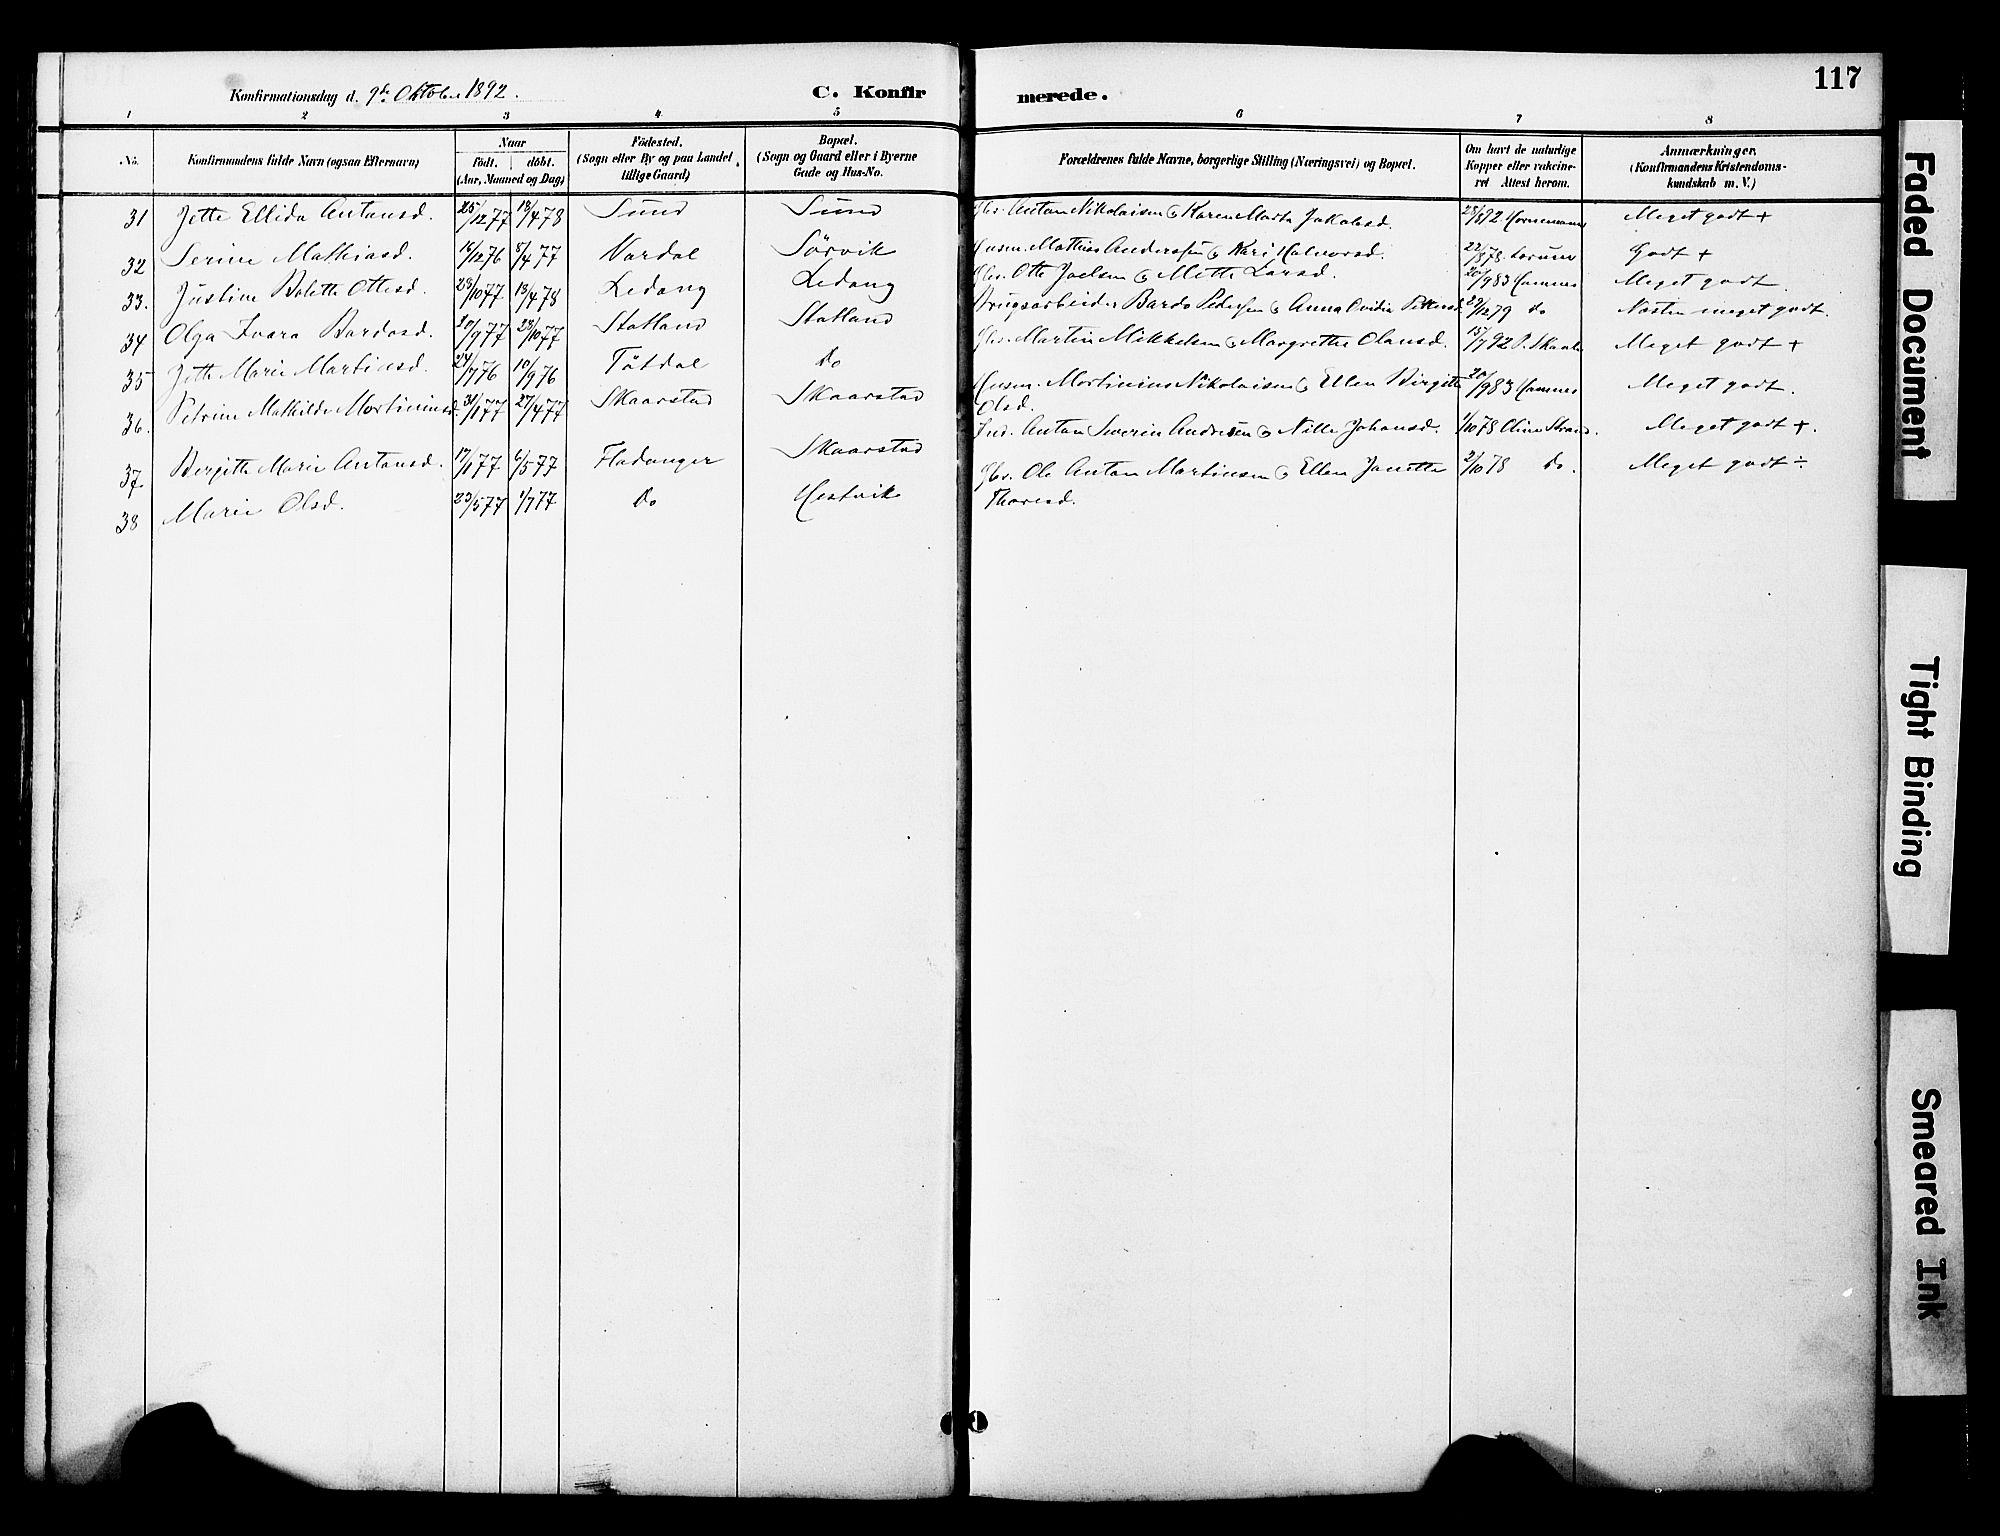 117
Konfirmationsdag d. 9de Oktober 1892.
C. Konfirmerede.
1 2 3 4 5 6 7 8
No.
Konfirmandens fulde Navn (ogsaa Efternavn)
Naar
födt. döbt.
(Aar, Maaned og Dag)
Födested.
(Sogn eller By og paa Landet tillige Gaard)
Bopæl.
(Sogn og Gaard eller i Byerne Gade og Hus-No.
Forældrenes fulde Navne, borgerlige Stilling (Næringsvei) og Bopæl.
Om havt de naturlige Kopper eller vakcineret Attest herom.
Anmærkninger.
(Konfirmandens Kristendomskundskab m. V.)
31 Jette Ellida Antonsd. 25/12 77 18/4 78 Sund Sund Gbr. Anton Nikolaisen & Karen Marta Jakobsd. Meget godt +
32 Serine Mathiasd. 16/12 76 8/4 77 Vardal Sörvik Husm. Mathias Anderssen & Kari Halvorsd. Godt +
33. Justine Bolette Ottesd. 28/10 77 13/4 78 Ledang Ledang Gbr. Otte Joelsen & Mette Larsd. 20/9 83 Hamnes Meget godt.
34 Olga Ivara Bardosd. 20/9 77 28/10 77 Statland Statland Brugsarbeider Bardo Pedersen & Anna Ovidia 29/12 79 Do Næsten meget godt.
35 Jette Marie Martinsd. 24/7 76 10/9 76 Tötdal Do Gbr. Martin Mikkelsen & Margrethe Olausd. 15/7 92 Meget godt +
36. Petrine Mathilde Mortininsd. 31/1 77 27/4 77 Skaarstad Skaarstad Husm. Mortinius Nikolaisen & Ellen Birgitte Olsd. 20/9 83 Hamnes Meget godt.
37 Bergitte Marie Antonsd. 17/1 77 6/5 77 Fladanger Skaarstad Ind. Anton Severin Andresen & Nille Johansd. 1/10 78 Oline Strand. Meget godt +.
38 Marie Olsd. 23/5 77 1/7 77 Do Hestvik Gbr. Ole Anton Martinsen & Ellen Janette Thoresd. 2/10 78 Do. Meget godt ÷
Faded Document
Tight Binding
Smeared Ink